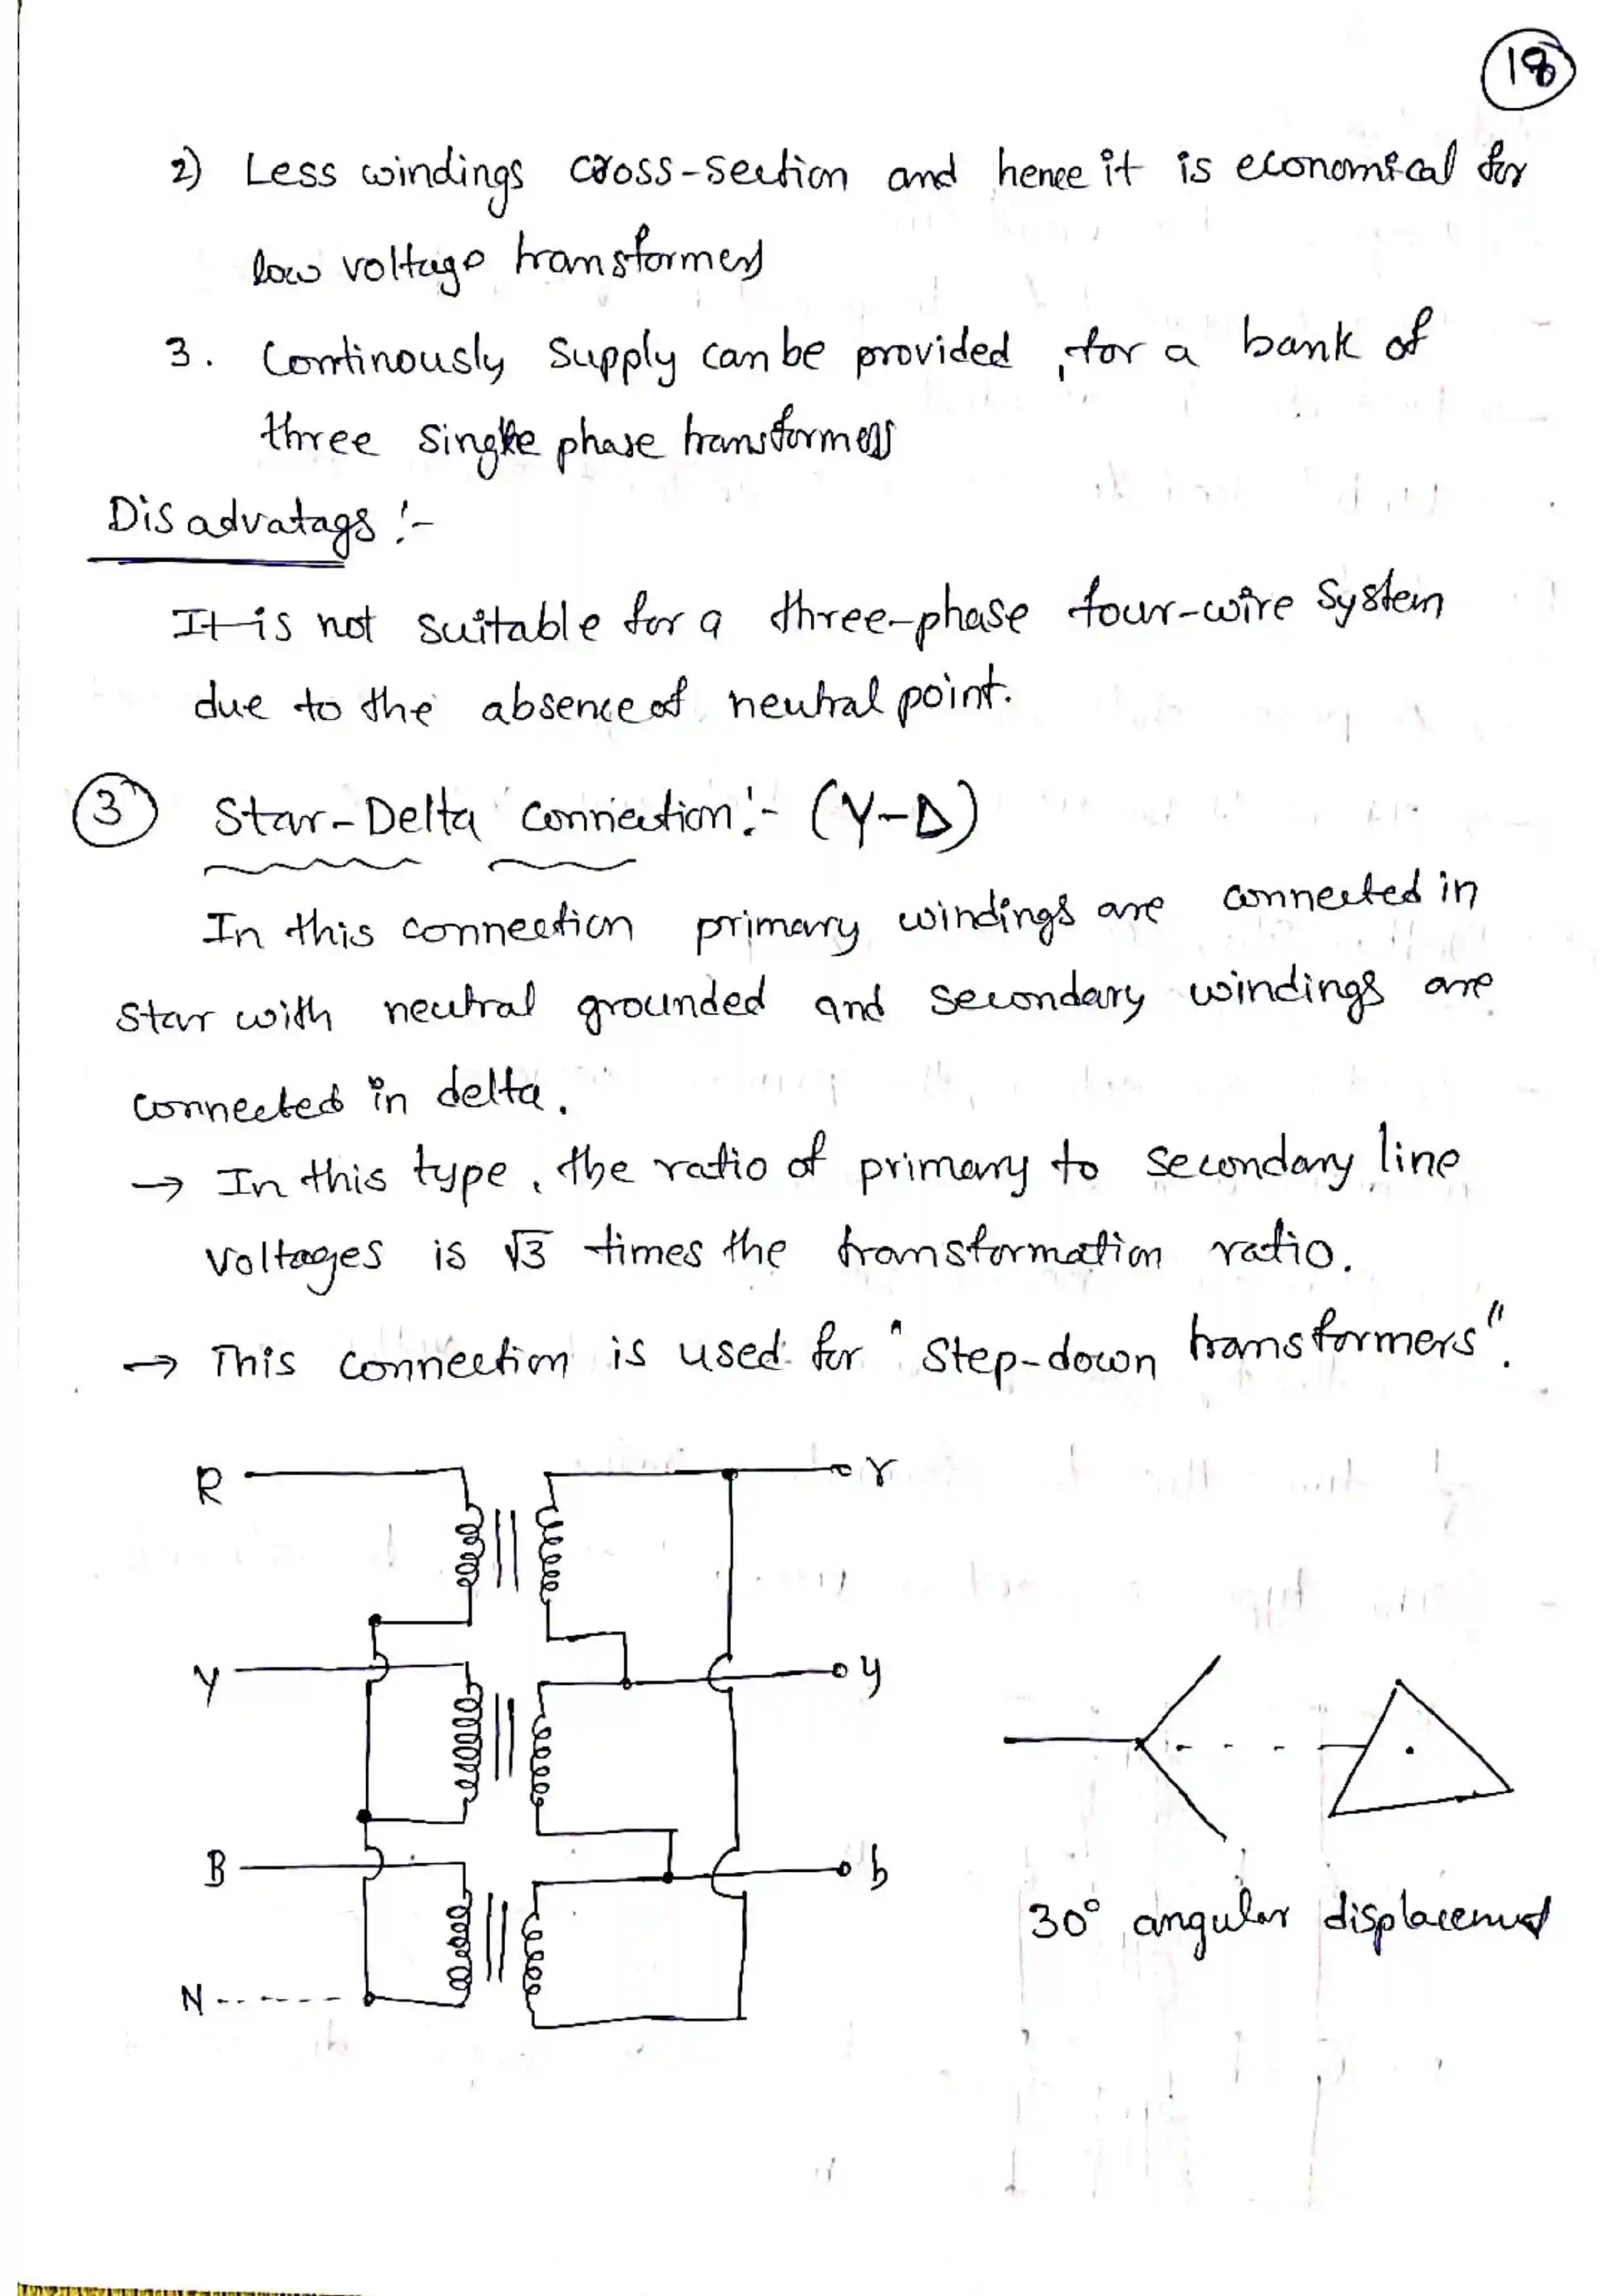 18
2) Less windings cross-section and hence it is economical for
low voltage transformers
3. Continously supply can be provided, for a bank of
three single phase transformers
Disadvatags :-
It is not suitable for a three-phase four-wire system
due to the absence of neutral point.
3 Star-Delta connection :- (Y-Δ)
In this connection primary windings are connected in
star with neutral grounded and secondary windings are
connected in delta.
→ In this type, the ratio of primary to secondary line
voltages is √3 times the transformation ratio.
→ This connection is used for "Step-down transformers".
R r
Y y
B b
30° angular displacement
N